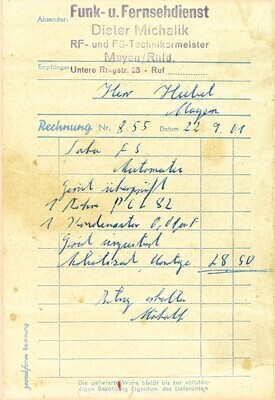 Absender:
Funk- u. Fernsehdienst
Dieter Michalik
RF- und FS-Technikermeister
Mayen/Rhld.
Empfänger: Untere Ringstr. 25 - Ruf
Herr Hubel
Mayen
Rechnung Nr. 855 Datum 22.9.61
Saba FS
Automatic
Gerät überprüft
1 Röhre PCL 82
1 Kondensator
Gerät
28 50
Betrag erhalten
Michalik
Die gelieferte Ware bleibt bis zur vollstän-
digen Bezahlung Eigentum des Lieferanten
zweckform Rechnung